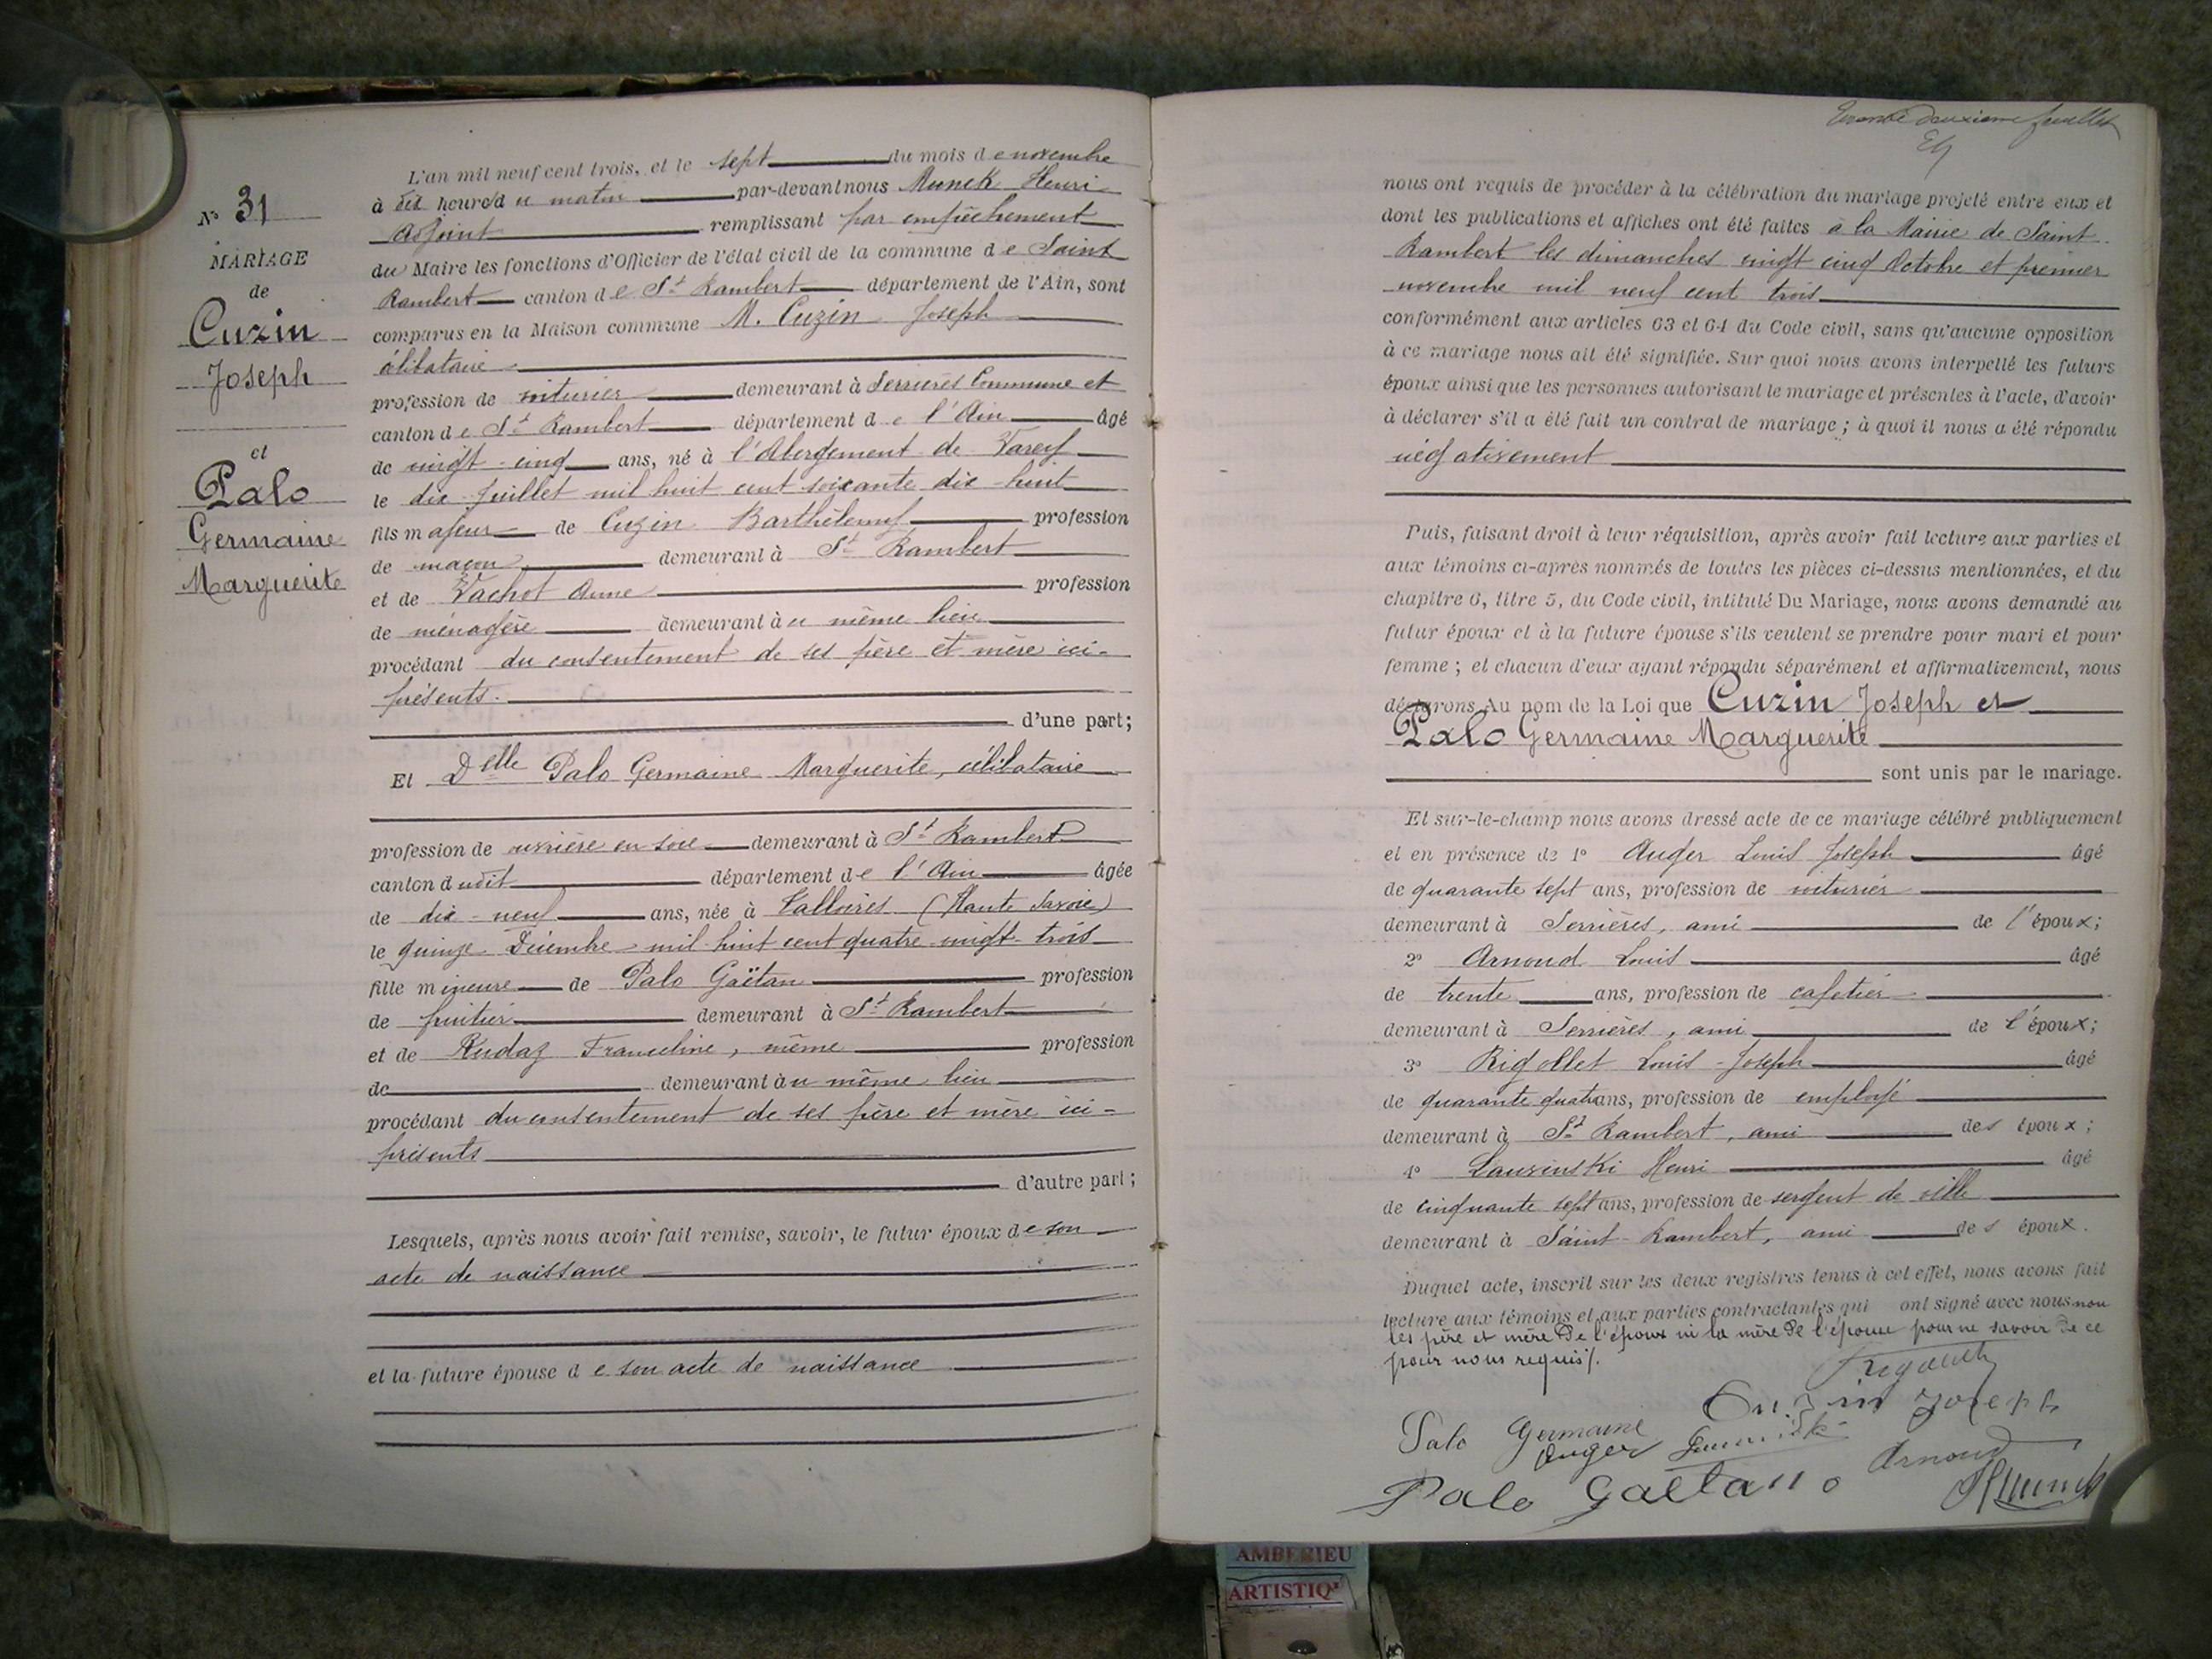 N° 31
MARIAGE
de
Cuzin
Joseph
et
Palo
Germaine
Marguerite
L'an mil neuf cent trois, et le sept du mois de novembre
à dix heures du matin par-devant nous Munck Henri
adjoint remplissant par empêchement
du Maire les fonctions d'Officier de l'état civil de la commune de Saint
Rambert canton de St Rambert département de l'Ain, sont
comparus en la Maison commune M. Cuzin Joseph
célibataire
profession de voiturier demeurant à Serrières Commune et
canton de St Rambert département de l'Ain âgé
de vingt-cinq ans, né à l'Abergement de Varey
le dix Juillet mil huit cent soixante dix-huit
fils majeur de Cuzin Barthélemy profession
de maçon demeurant à St Rambert
et de Vachot Anne profession
de ménagère demeurant au même lieu
procédant du consentement de ses père et mère ici-
présents.
d'une part;
Et Delle Palo Germaine Marguerite, célibataire
profession de ouvrière en soie demeurant à St Rambert
canton dudit département de l'Ain âgée
de dix-neuf ans, née à Talloires (Haute Savoie)
le quinze Décembre mil huit cent quatre-vingt-trois
fille mineure de Palo Gaëtan profession
de fruitier demeurant à St Rambert
et de Rudaz Franceline, même profession
de demeurant au même lieu
procédant du consentement de ses père et mère ici-
présents
d'autre part;
Lesquels, après nous avoir fait remise, savoir, le futur époux de son
acte de naissance
et la future épouse de son acte de naissance
trente deuxième feuillet
nous ont requis de procéder à la célébration du mariage projeté entre eux et
dont les publications et affiches ont été faites à la Mairie de Saint
Rambert les dimanches vingt cinq Octobre et premier
novembre mil neuf cent trois
conformément aux articles 63 et 64 du Code civil, sans qu'aucune opposition
à ce mariage nous ait été signifiée. Sur quoi nous avons interpellé les futurs
époux ainsi que les personnes autorisant le mariage et présentes à l'acte, d'avoir
à déclarer s'il a été fait un contrat de mariage; à quoi il nous a été répondu
négativement
Puis, faisant droit à leur réquisition, après avoir fait lecture aux parties et
aux témoins ci-après nommés de toutes les pièces ci-dessus mentionnées, et du
chapitre 6, titre 5, du Code civil, intitulé Du Mariage, nous avons demandé au
futur époux et à la future épouse s'ils veulent se prendre pour mari et pour
femme; et chacun d'eux ayant répondu séparément et affirmativement, nous
déclarons Au nom de la Loi que Cuzin Joseph et
Palo Germaine Marguerite
sont unis par le mariage.
Et sur-le-champ nous avons dressé acte de ce mariage célébré publiquement
et en présence de 1° Auger Louis Joseph âgé
de quarante sept ans, profession de voiturier
demeurant à Serrières, ami de l'époux;
2° Arnoud Louis âgé
de trente ans, profession de cafetier
demeurant à Serrières, ami de l'époux;
3° Rigollet Louis-Joseph âgé
de quarante quatre ans, profession de employé
demeurant à St Rambert, ami des époux;
4° Henri âgé
de cinquante sept ans, profession de sergent de ville
demeurant à Saint-Rambert, ami des époux.
Duquel acte, inscrit sur les deux registres tenus à cet effet, nous avons fait
lecture aux témoins et aux parties contractantes qui ont signé avec nous non
les père et mère de l'époux ni la mère de l'épouse pour ne savoir de ce
pour nous requis.
Cuzin Joseph
Palo Germaine
Auger
Arnoud
Palo Gaëtano
AMBERIEU
ARTISTIQ